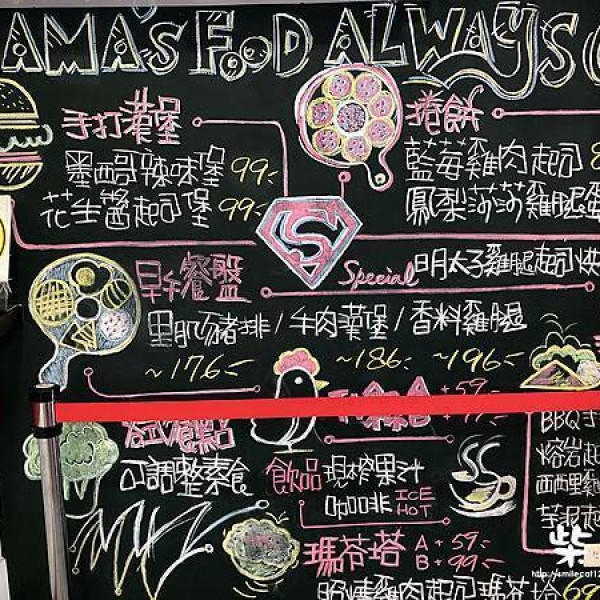 AMA'S FOOD ALWAYS
手打漢堡
墨西哥辣味堡 99.-
花生醬起司堡 99.-
捲餅
藍莓雞肉起司
鳳梨莎莎雞腿蛋
S
Special 明太子雞腿起司烘
早午餐盤
里肌豬排 / 牛肉漢堡 / 香料雞腿
~176.- ~186.- ~196.-
+59.-
可調整素食
飲品 現榨果汁
咖啡 ICE
HOT
瑪芬塔 A + 59.-
B + 99.-
BBQ手
熔岩起
西西里
柴
http://smilecat12